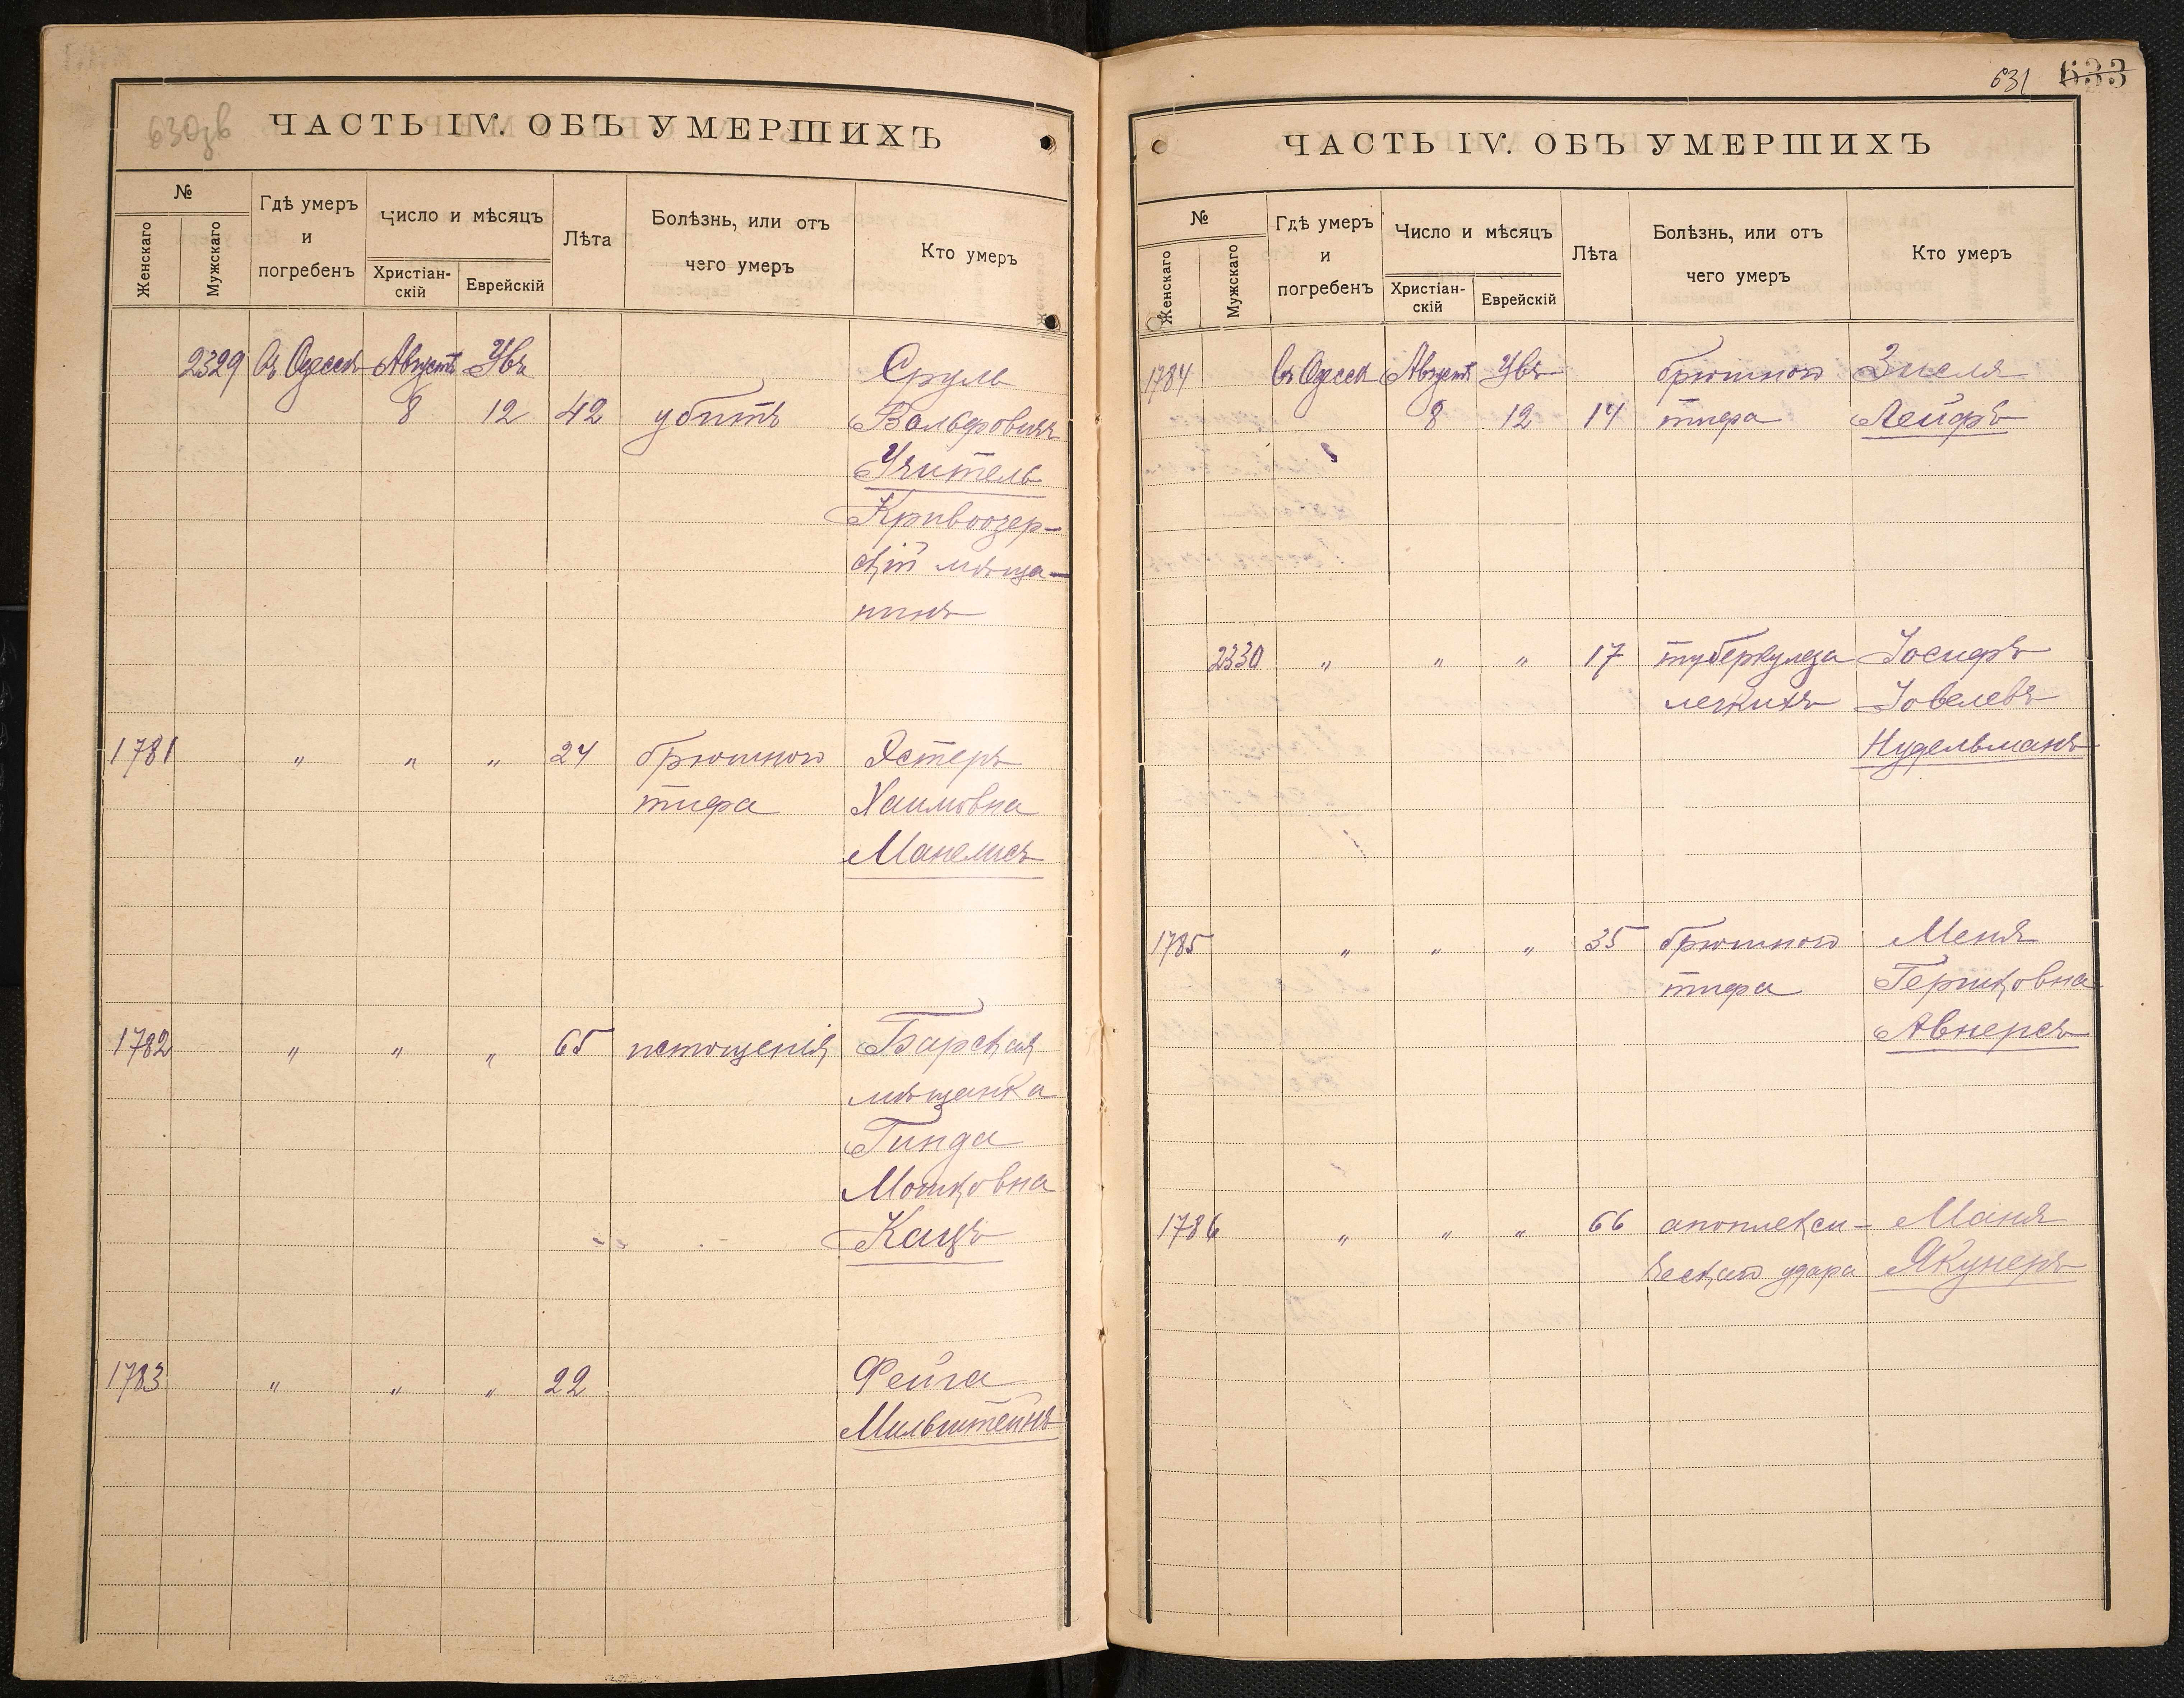 630зв
ЧАСТЬ IV. ОБЪ УМЕРШИХЪ
№
Женскаго
Мужскаго
Гдѣ умеръ
и
погребенъ
Число и мѣсяцъ
Христіан-
скій
Еврейскій
Лѣта
Болѣзнь, или отъ
чего умеръ
Кто умеръ
2329 Въ Одессѣ Августъ Увъ Сруль
8 12 42 убитъ Вольфовичъ
Учитель
Кривоозер-
скій мѣща-
нинъ
1781 " " " 24 брюшного Эстеръ
тифа Хаимовна
Манелисъ
1782 " " " 65 истощенія Барская
мѣщанка
Гинда
Мошковна
Кацъ
1783 " " " 22 Фейга
Мильштейнъ
631 633
ЧАСТЬ IV. ОБЪ УМЕРШИХЪ
№
Женскаго
Мужскаго
Гдѣ умеръ
и
погребенъ
Число и мѣсяцъ
Христіан-
скій
Еврейскій
Лѣта
Болѣзнь, или отъ
чего умеръ
Кто умеръ
1784 Въ Одессѣ Августъ Увъ брюшного Зиселя
8 12 14 тифа Лейфъ
2330 " " " 17 туберкулеза Іосифъ
легкихъ Іовелевъ
Нудельманъ
1785 " " " 35 брюшного Меня
тифа Гершковна
Авнерсъ
1786 " " " 66 апоплекси- Маня
ческаго удара Якунеръ